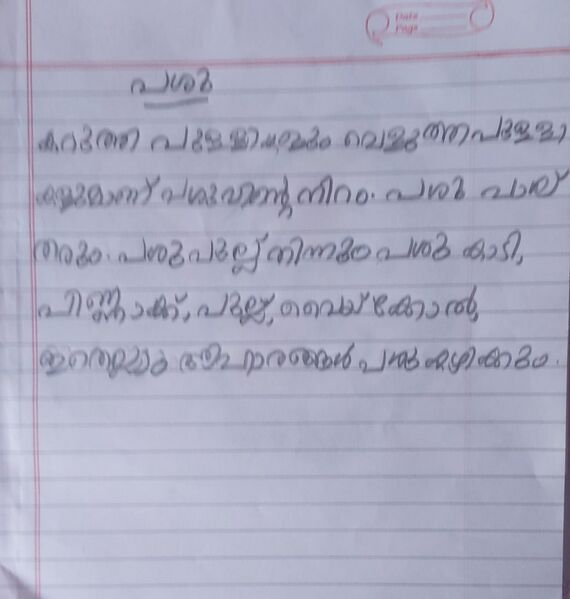 Date
Page
പശു
കറുത്ത പുള്ളികളും വെളുത്ത പുള്ളി
കളുമാണ് പശുവിന്റെ നിറം. പശു പാല്
തരും. പശു പുല്ല് തിന്നും പശു കാടി,
പിണ്ണാക്ക്, പുല്ല്, വൈക്കോൽ,
ഇതെല്ലാം പശു കഴിക്കും.